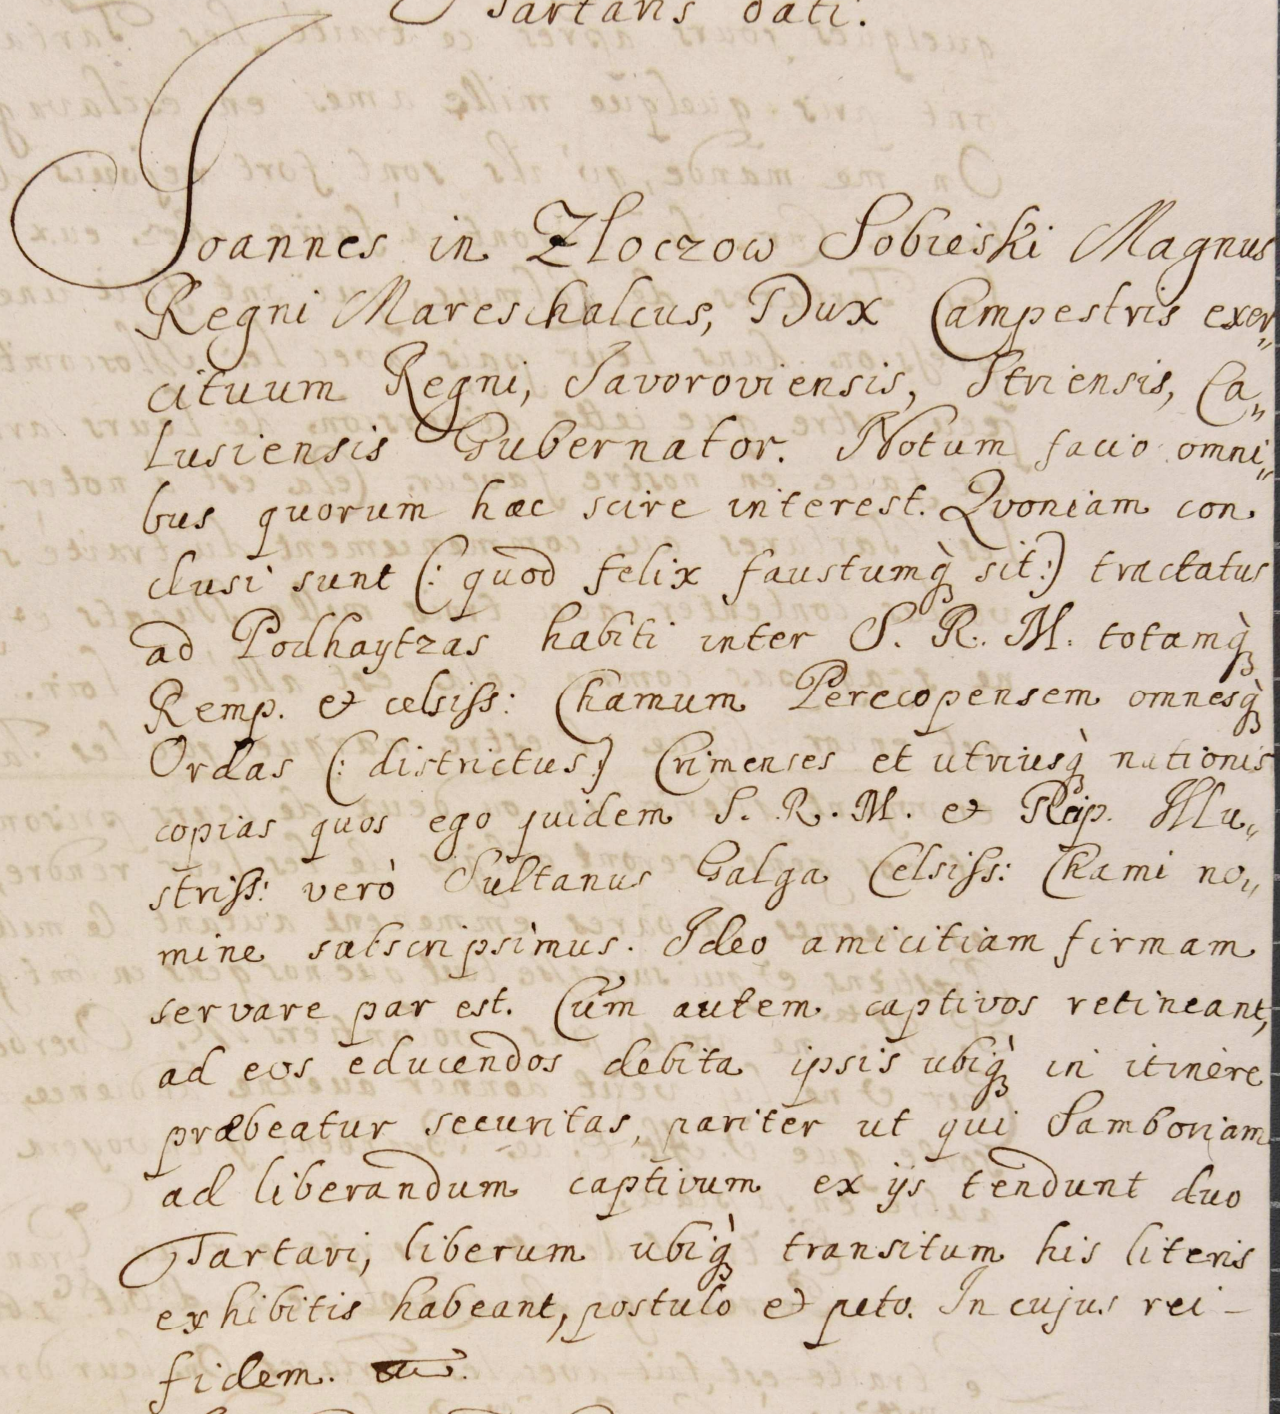 Tartaris dati.
Joannes in Zloczow Sobieski Magnus
Regni Mareschalcus, Dux Campestris exer„
cituum Regni, Javoroviensis, Striensis, Ca„
lusiensis Gubernator. Notum facio omni„
bus quorum hæc scire interest. Qvoniam con
clusi sunt (: quod felix faustumq̀ sit:) tractatus
ad Podhaytzas habiti inter S. R. M. totamq̀
Remp. et celsiss: Chamum Perecopensem omnesq̀
Ordas (: districtus:) Crimenses et utriusq̀ nationis
copias quos ego quidem S. R. M. et Reip. Illu„
striss: verò Sultanus Galga Celsiss: Chami no„
mine subscripsimus. Ideo amicitiam firmam
servare par est. Cum autem captivos retineant,
ad eos educendos debita ipsis ubiq̀ in itinere
præbeatur securitas, pariter ut qui Samboriam
ad liberandum captivum ex ijs tendunt duo
Tartari, liberum ubiq̀ transitum his literis
exhibitis habeant, postulo et peto. In cujus rei –
fidem.